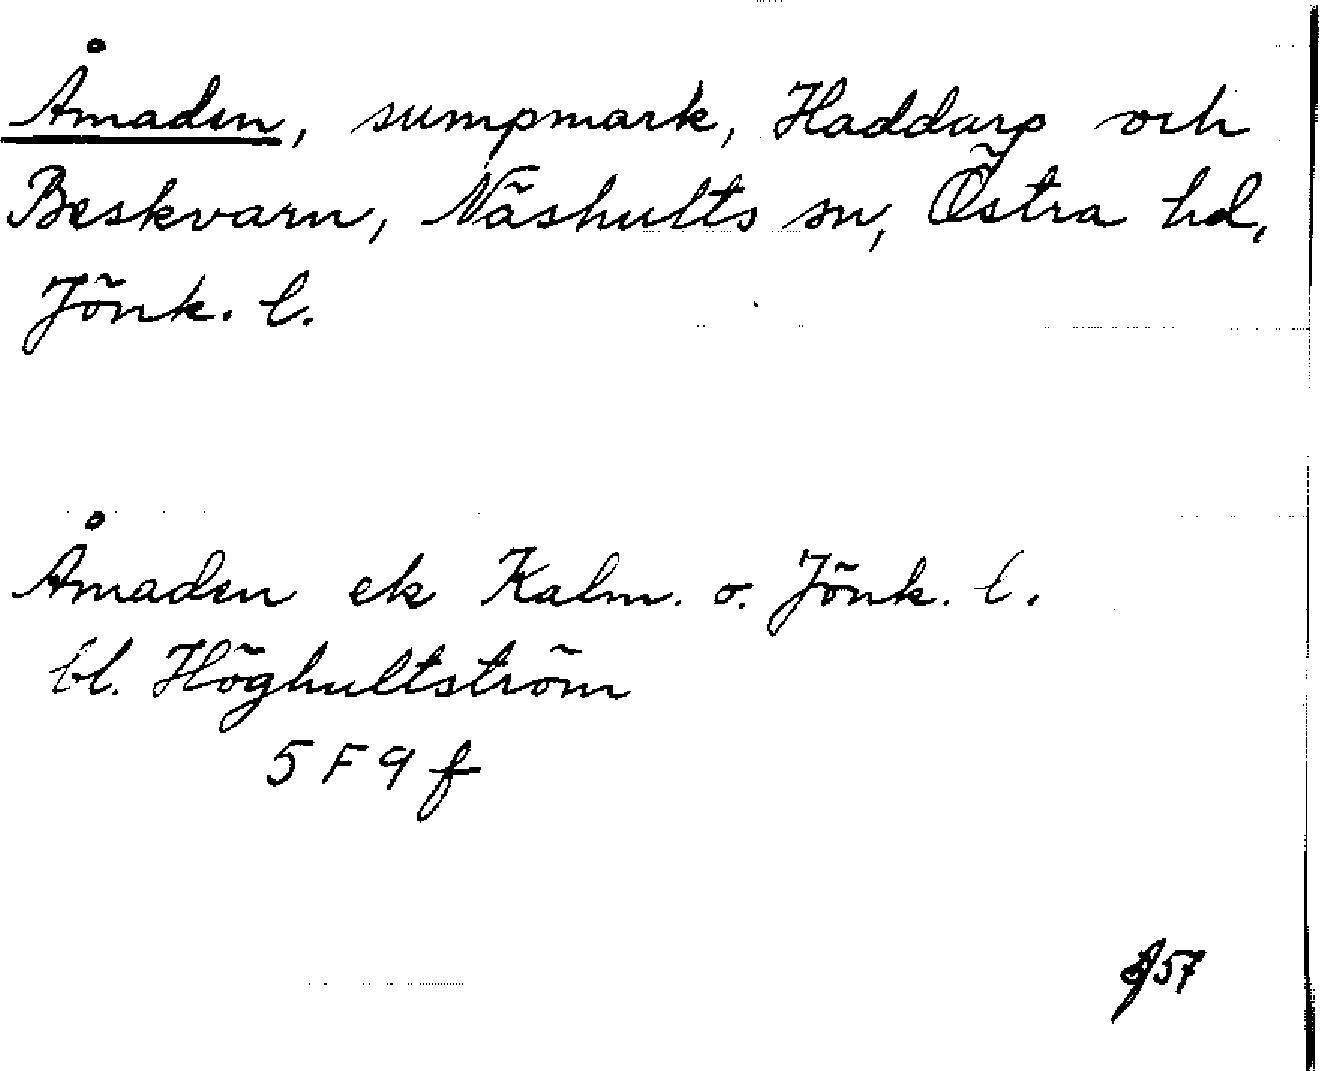 Åmaden, sumpmark, Haddarp och
Beskvarn, Näshults sn, Östra hd,
Jönk. l.
Åmaden ek Kalm. o. Jönk. l.
bl. Höghultström
5 F 9 f
57